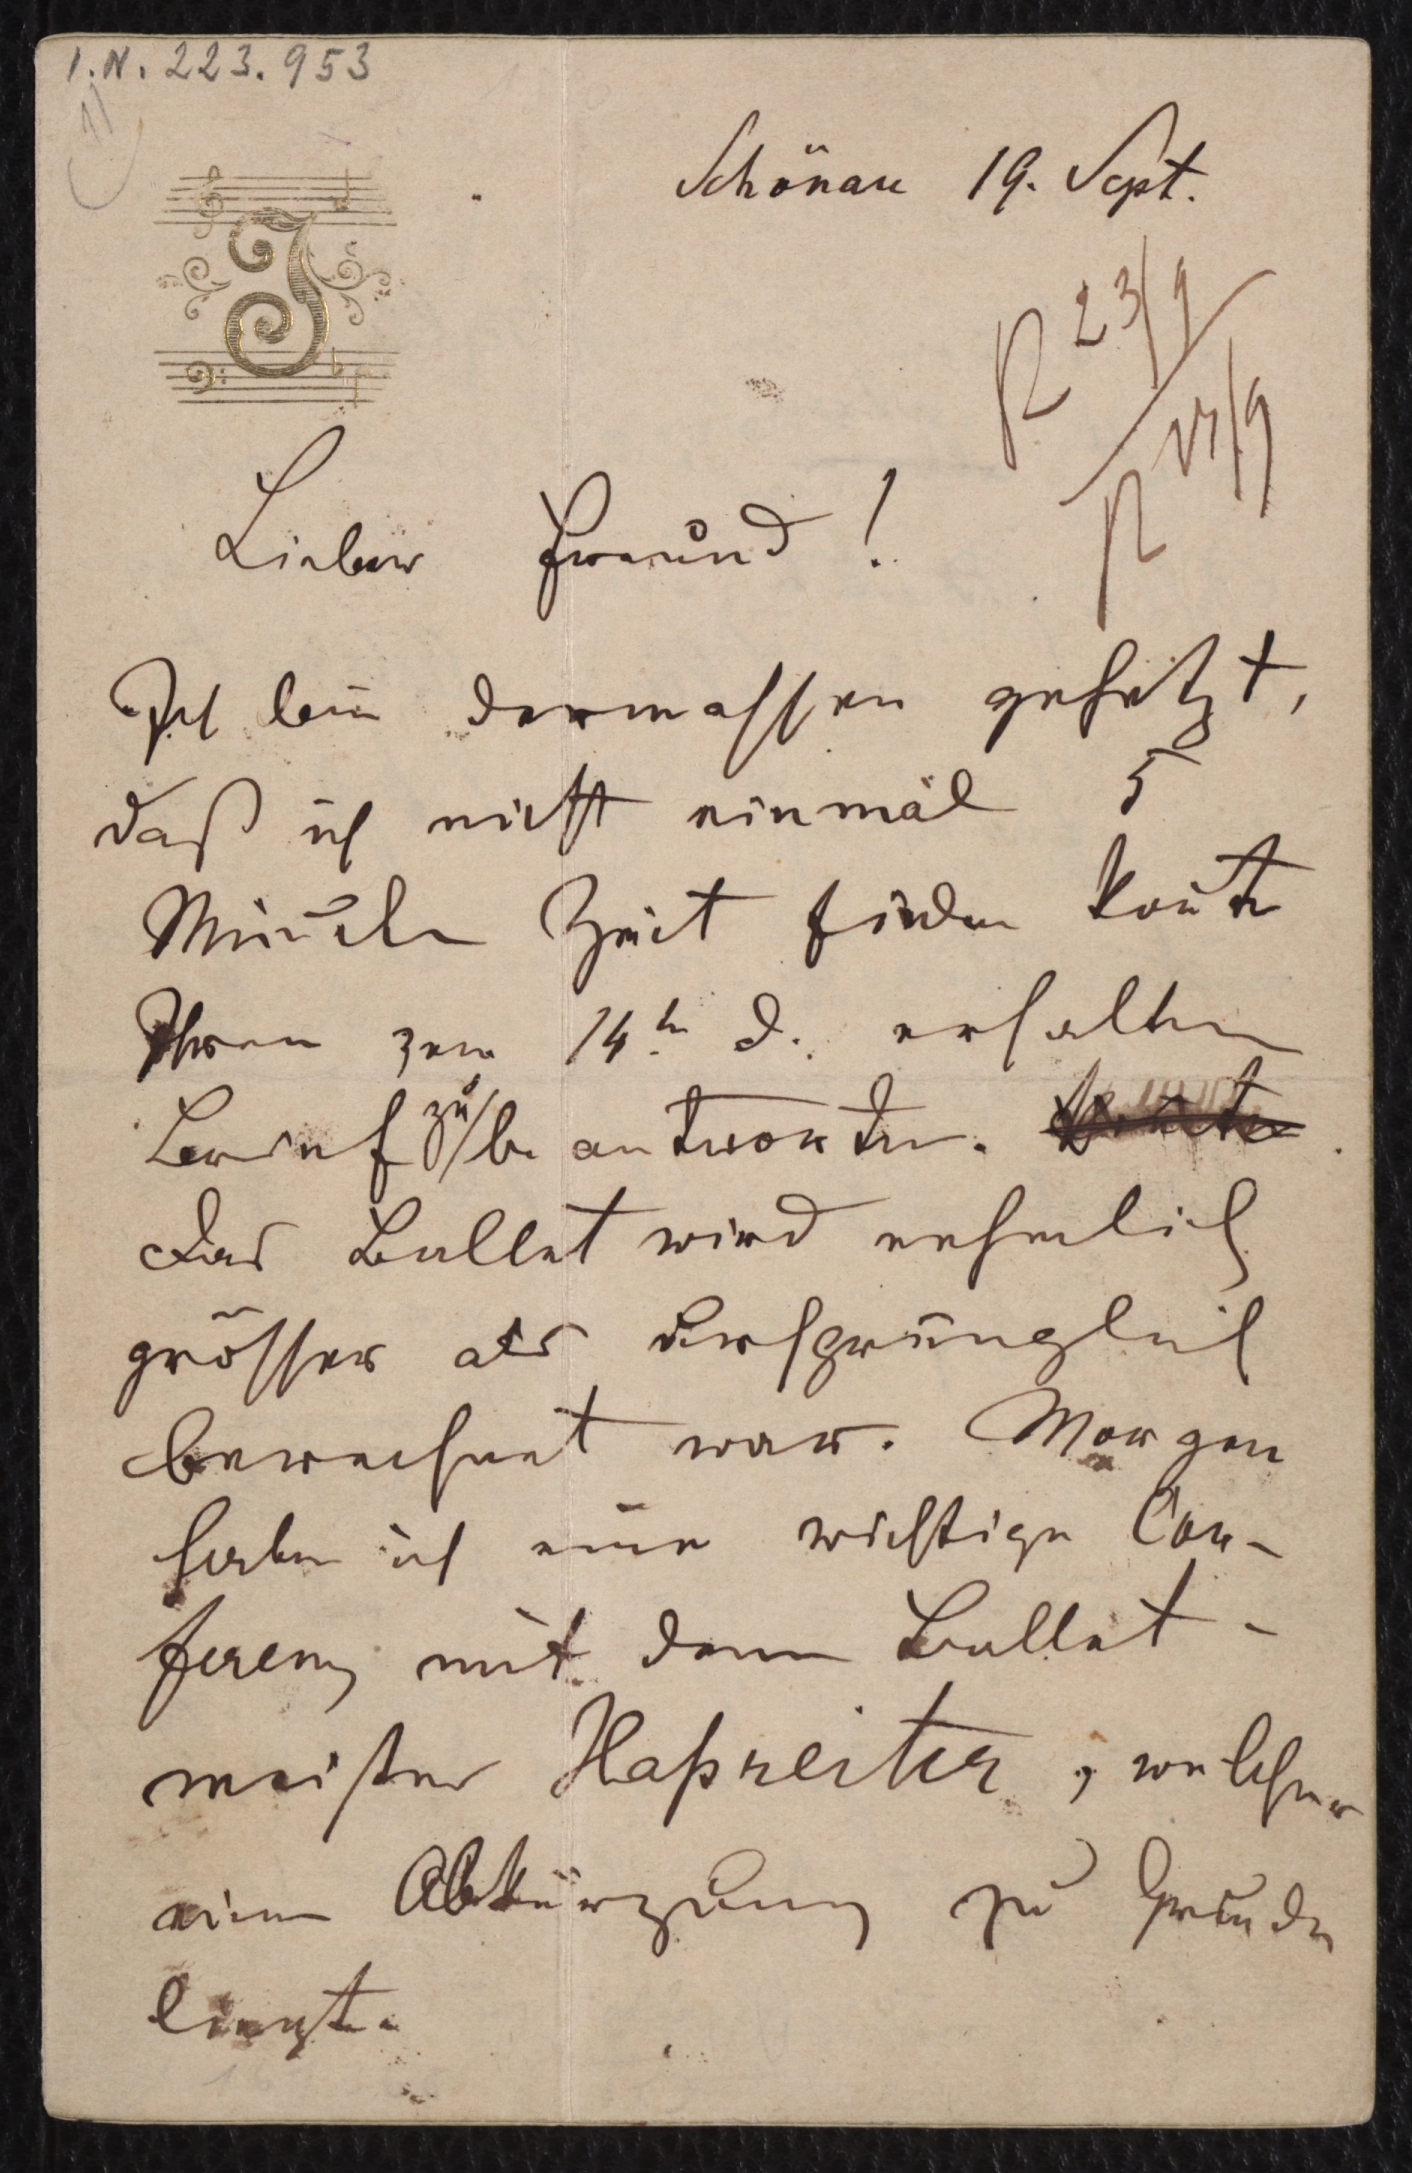 I.N. 223.953
1)
Schönau 19. Sept.
R 23/9
R 25/9
J
Lieber Freund!
Ich bin dermassen gehetzt,
daß ich nicht einmal 5
Minuten Zeit finden konte
Ihren zum 14tn d. erhalten
Brief zu/be antworten.
Das Ballet wird erheblich
grösser als ursprünglich
berechnet war. Morgen
habe ich eine wichtige Con-
ferenz mit dem Ballet-
meister Haßreiter, welcher
eine Abkürzung zu Grunde
liegt.